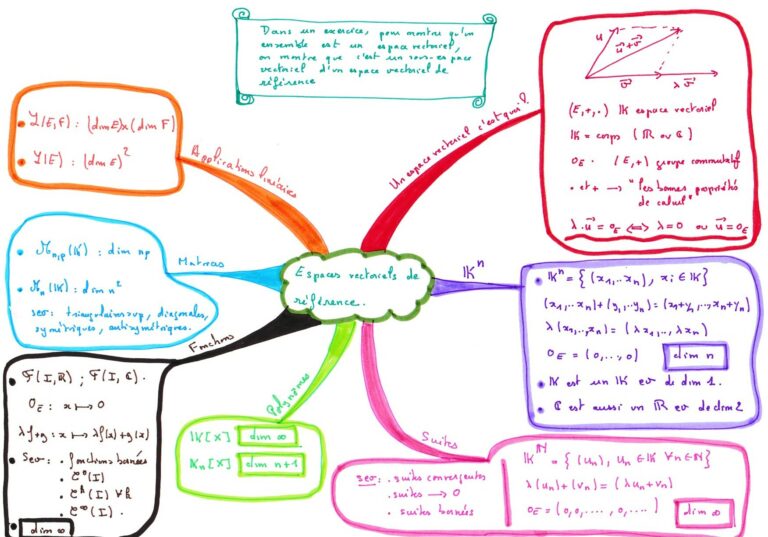 Dans un exercice, pour montrer qu'un
ensemble est un espace vectoriel,
on montre que c'est un sous-espace
vectoriel d'un espace vectoriel de
référence
Espaces vectoriels de
référence.
Un espace vectoriel c'est quoi ?
u u+v
v λv
(E,+,.) IK espace vectoriel
IK = corps (IR ou ℂ)
0E . (E,+) groupe commutatif
. et + → "les bonnes propriétés
de calcul"
λ.u = 0E ⟺ λ=0 ou u=0E
IKⁿ
• IKⁿ = { (x1,..xn), xi ∈ IK }
(x1,..xn)+(y1,..yn)=(x1+y1,..,xn+yn)
λ(x1,..,xn) = (λx1,.., λxn)
0E = (0,..,0) dim n
• IK est un IK ev de dim 1.
• ℂ est aussi un IR ev de dim 2
Suites
IK^IN = { (un), un ∈ IK ∀n ∈ IN }
λ(un)+(vn) = (λun+vn)
0E = (0,0,....,0,....) dim ∞
sev : . suites convergentes
. suites → 0
. suites bornées
Polynômes
IK[X] dim ∞
IKn[X] dim n+1
Fonctions
• F(I,IR) ; F(I,ℂ).
0E : x ↦ 0
λf+g : x ↦ λf(x)+g(x)
• sev : . fonctions bornées
. C⁰(I)
. Cᵏ(I) ∀k
. C^∞(I).
• dim ∞
Matrices
• Mn,p(IK) : dim np
• Mn(IK) : dim n²
sev : triangulaires sup, diagonales,
symétriques, antisymétriques.
Applications linéaires
• L(E,F) : (dim E)x(dim F)
• L(E) : (dim E)²